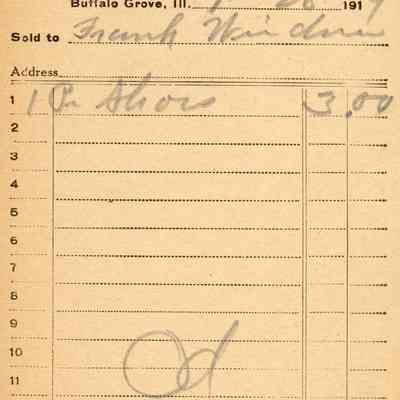 Buffalo Grove, Ill. 1919
Sold to Frank
Address
1 1 Pr Shoes 3.00
2
3
4
5
6
7
8
9
10
11